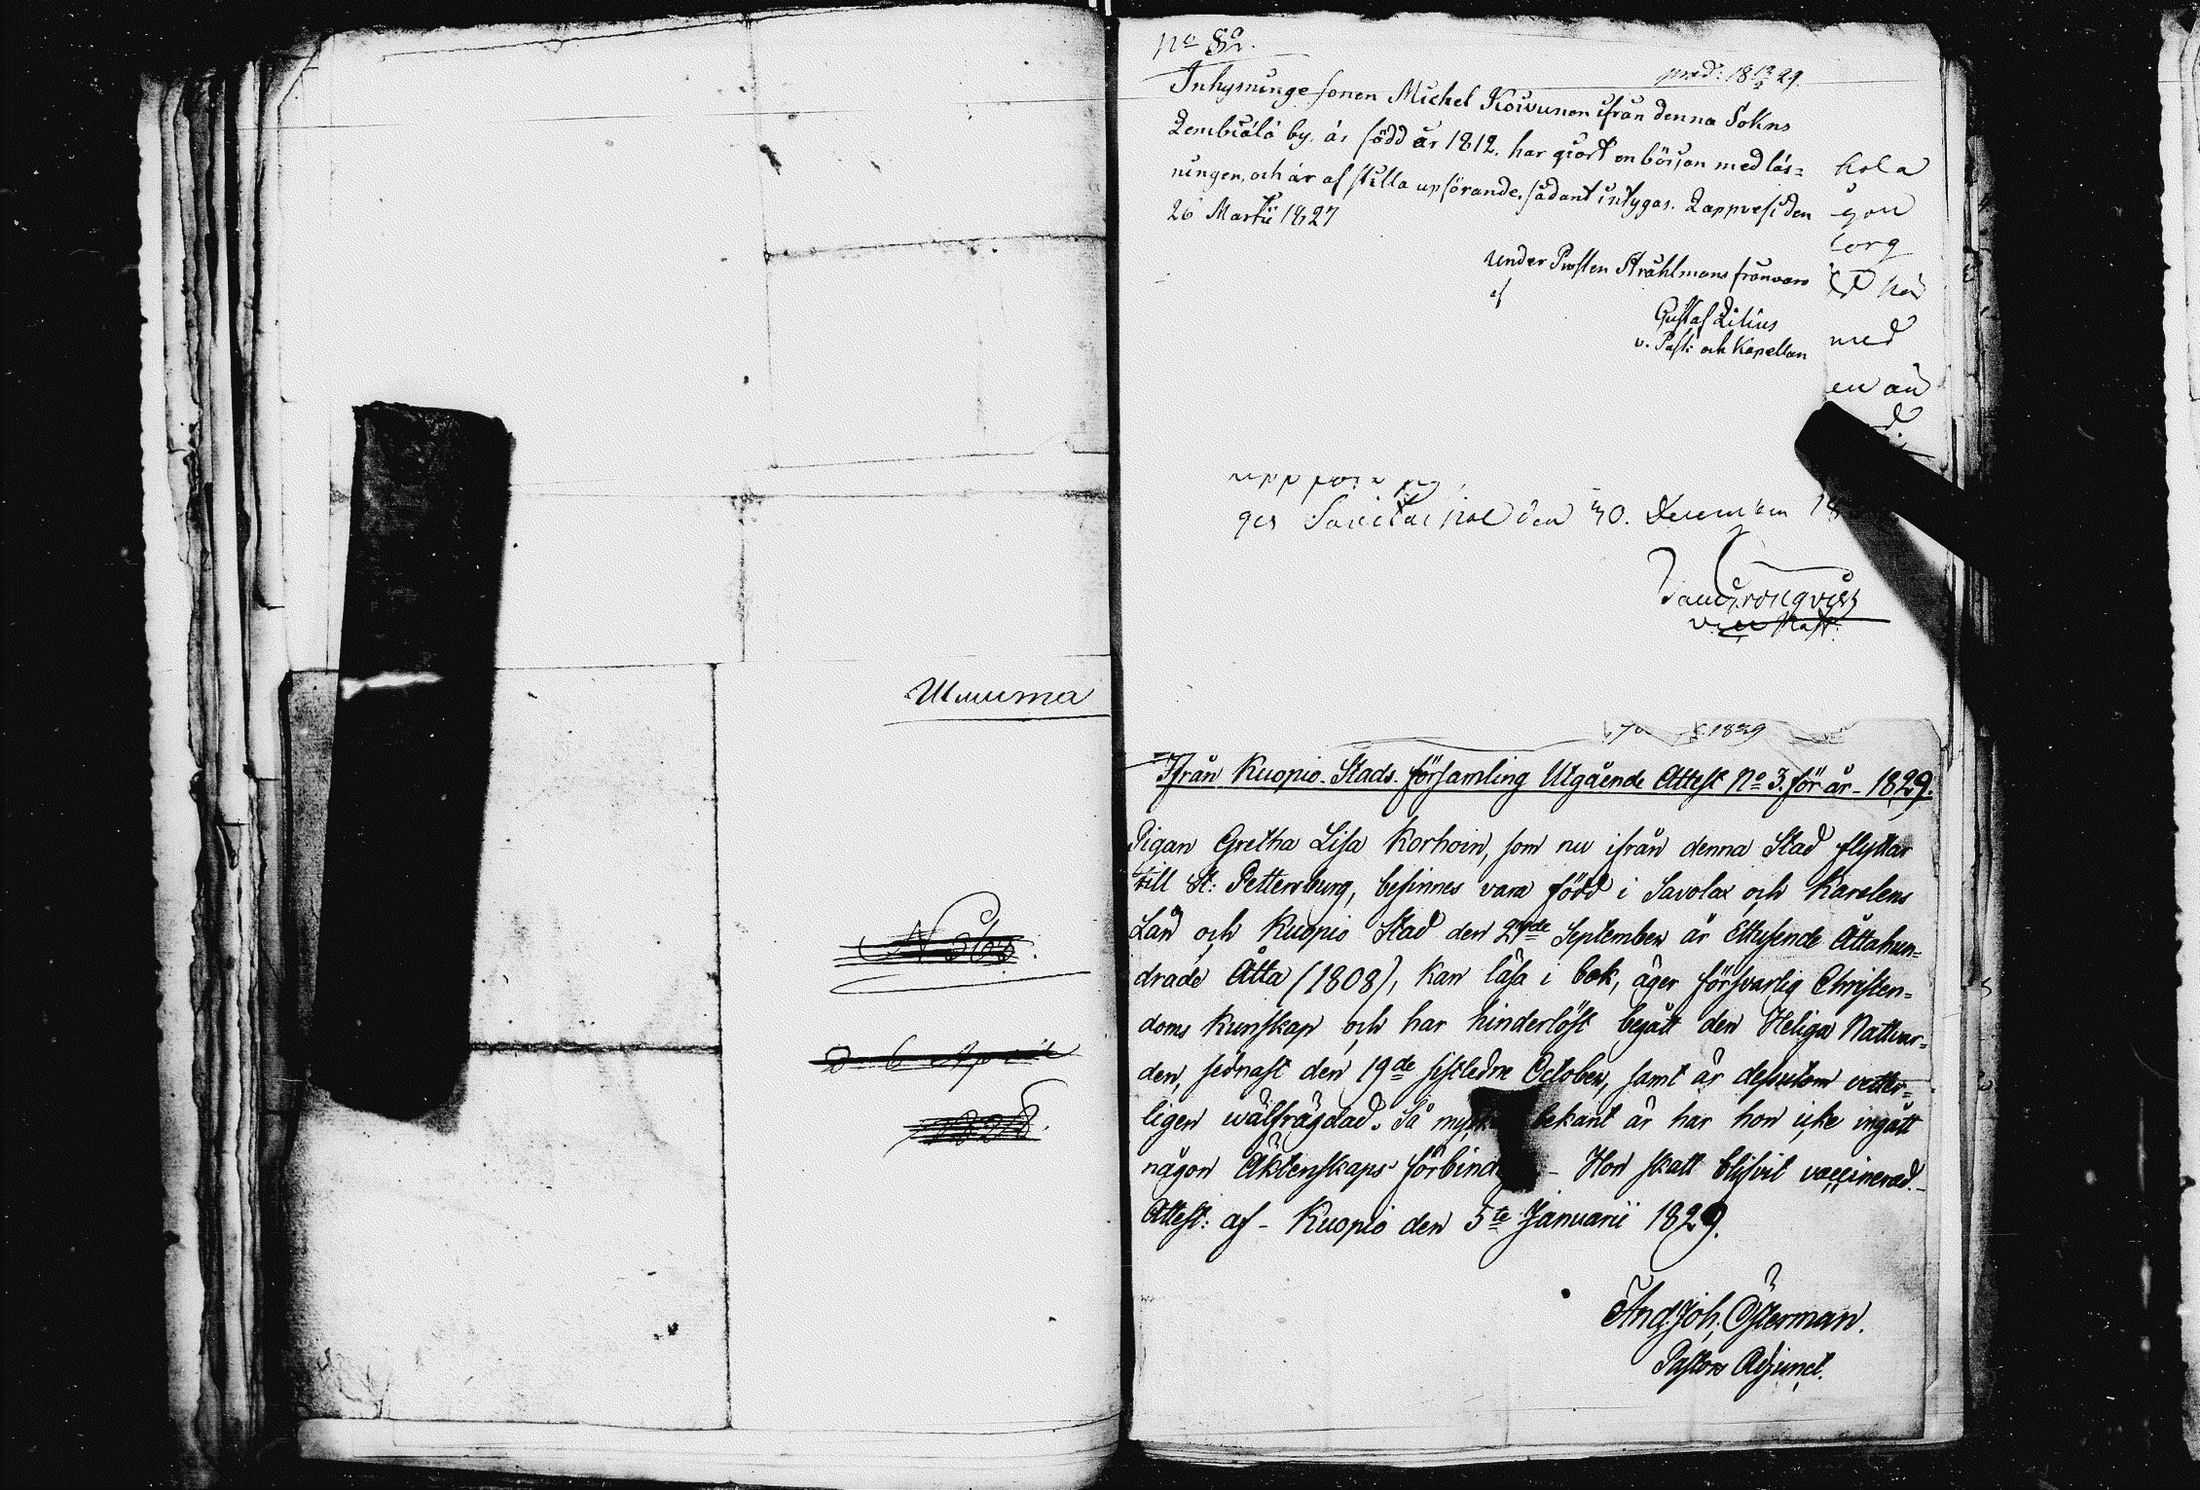 Ullmma
N 363.
D 6 April
1828.
No 82.
prod: 18 13/3 29.
Inhysninge sonen Michel Koivunen ifrån denna Sokns
Lembiälä by. är född år 1812. har giort en början med läs=
ningen, och är af stilla upförande, sådant intygas. Lappvesi den
26 Martii 1827
under Prosten Stråhlmans frånvaro
af
Gustaf Lilius
v. Past: och Kapellan
kola
gon
torg
med
en än
ges Savitaipal den 30. December 18
1829
Ifrån Kuopio Stads församling Utgående Attest No 3. för år 1829.
Pigan Gretha Lisa Korhoin, som nu ifrån denna Stad flyttar
till St: Pettersburg, befinnes vara född i Savolax och Karelens
Län och Kuopio Stad den 27de September år Ettusende Åttahun=
drade Åtta (1808), kan läsa i bok, äger försvarlig Christen=
doms kunskap och har hinderlöst begått den Heliga Nattvar=
den, sednast den 19de sistledne October, samt är dessutom vetter=
ligen wälfrägdad. Så mycket bekant är har hon icke ingått
någon Äktenskaps förbind – Hon skall blifvit vaccinerad. –
Attest: af – Kuopio den 5te Januarii 1829.
And. Joh. Österman.
Pastors Adjunct.